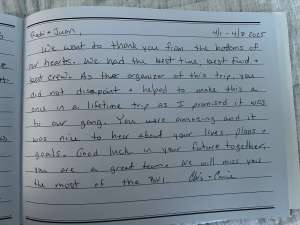 Gabi + Juan 4/1 - 4/8 2025
We want to thank you from the bottoms of
our hearts. We had the best time, best food +
best crew. As the organizer of this trip, you
did not disappoint + helped to make this a
once in a lifetime trip as I promised it was
to our gang. You were amazing and it
was nice to hear about your lives, plans +
goals. Good luck in your future together,
you are a great team. We will miss you
the most of the BVI.